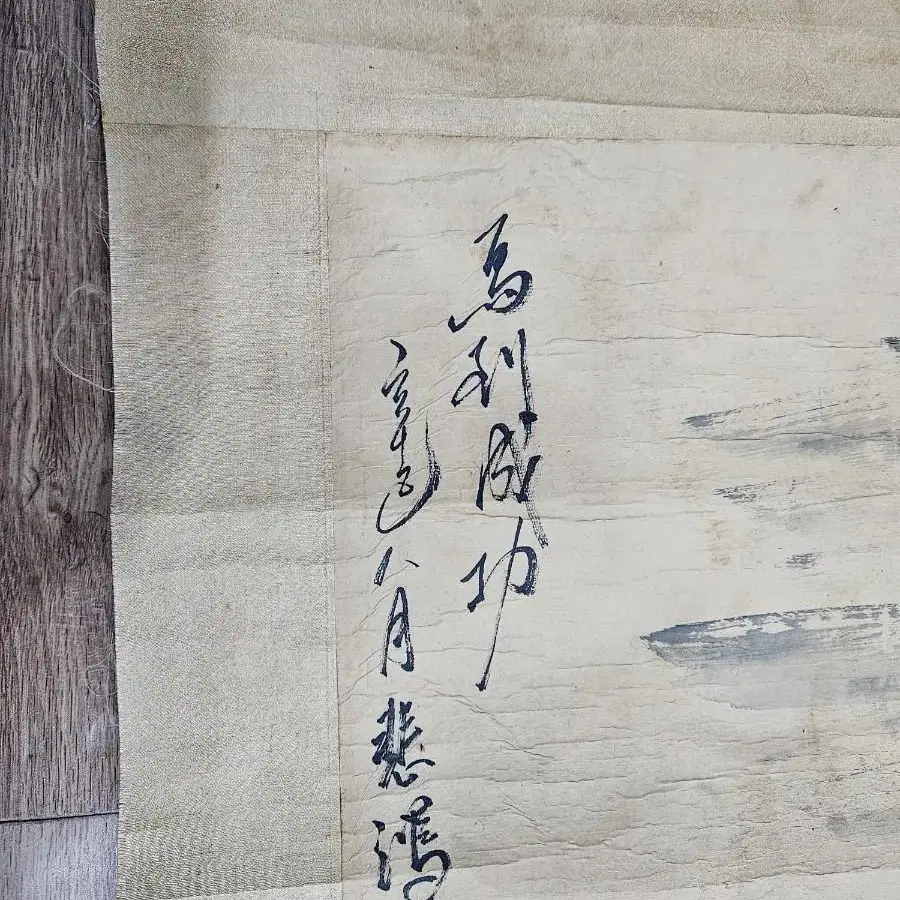 馬到成功
辛巳八月悲鴻